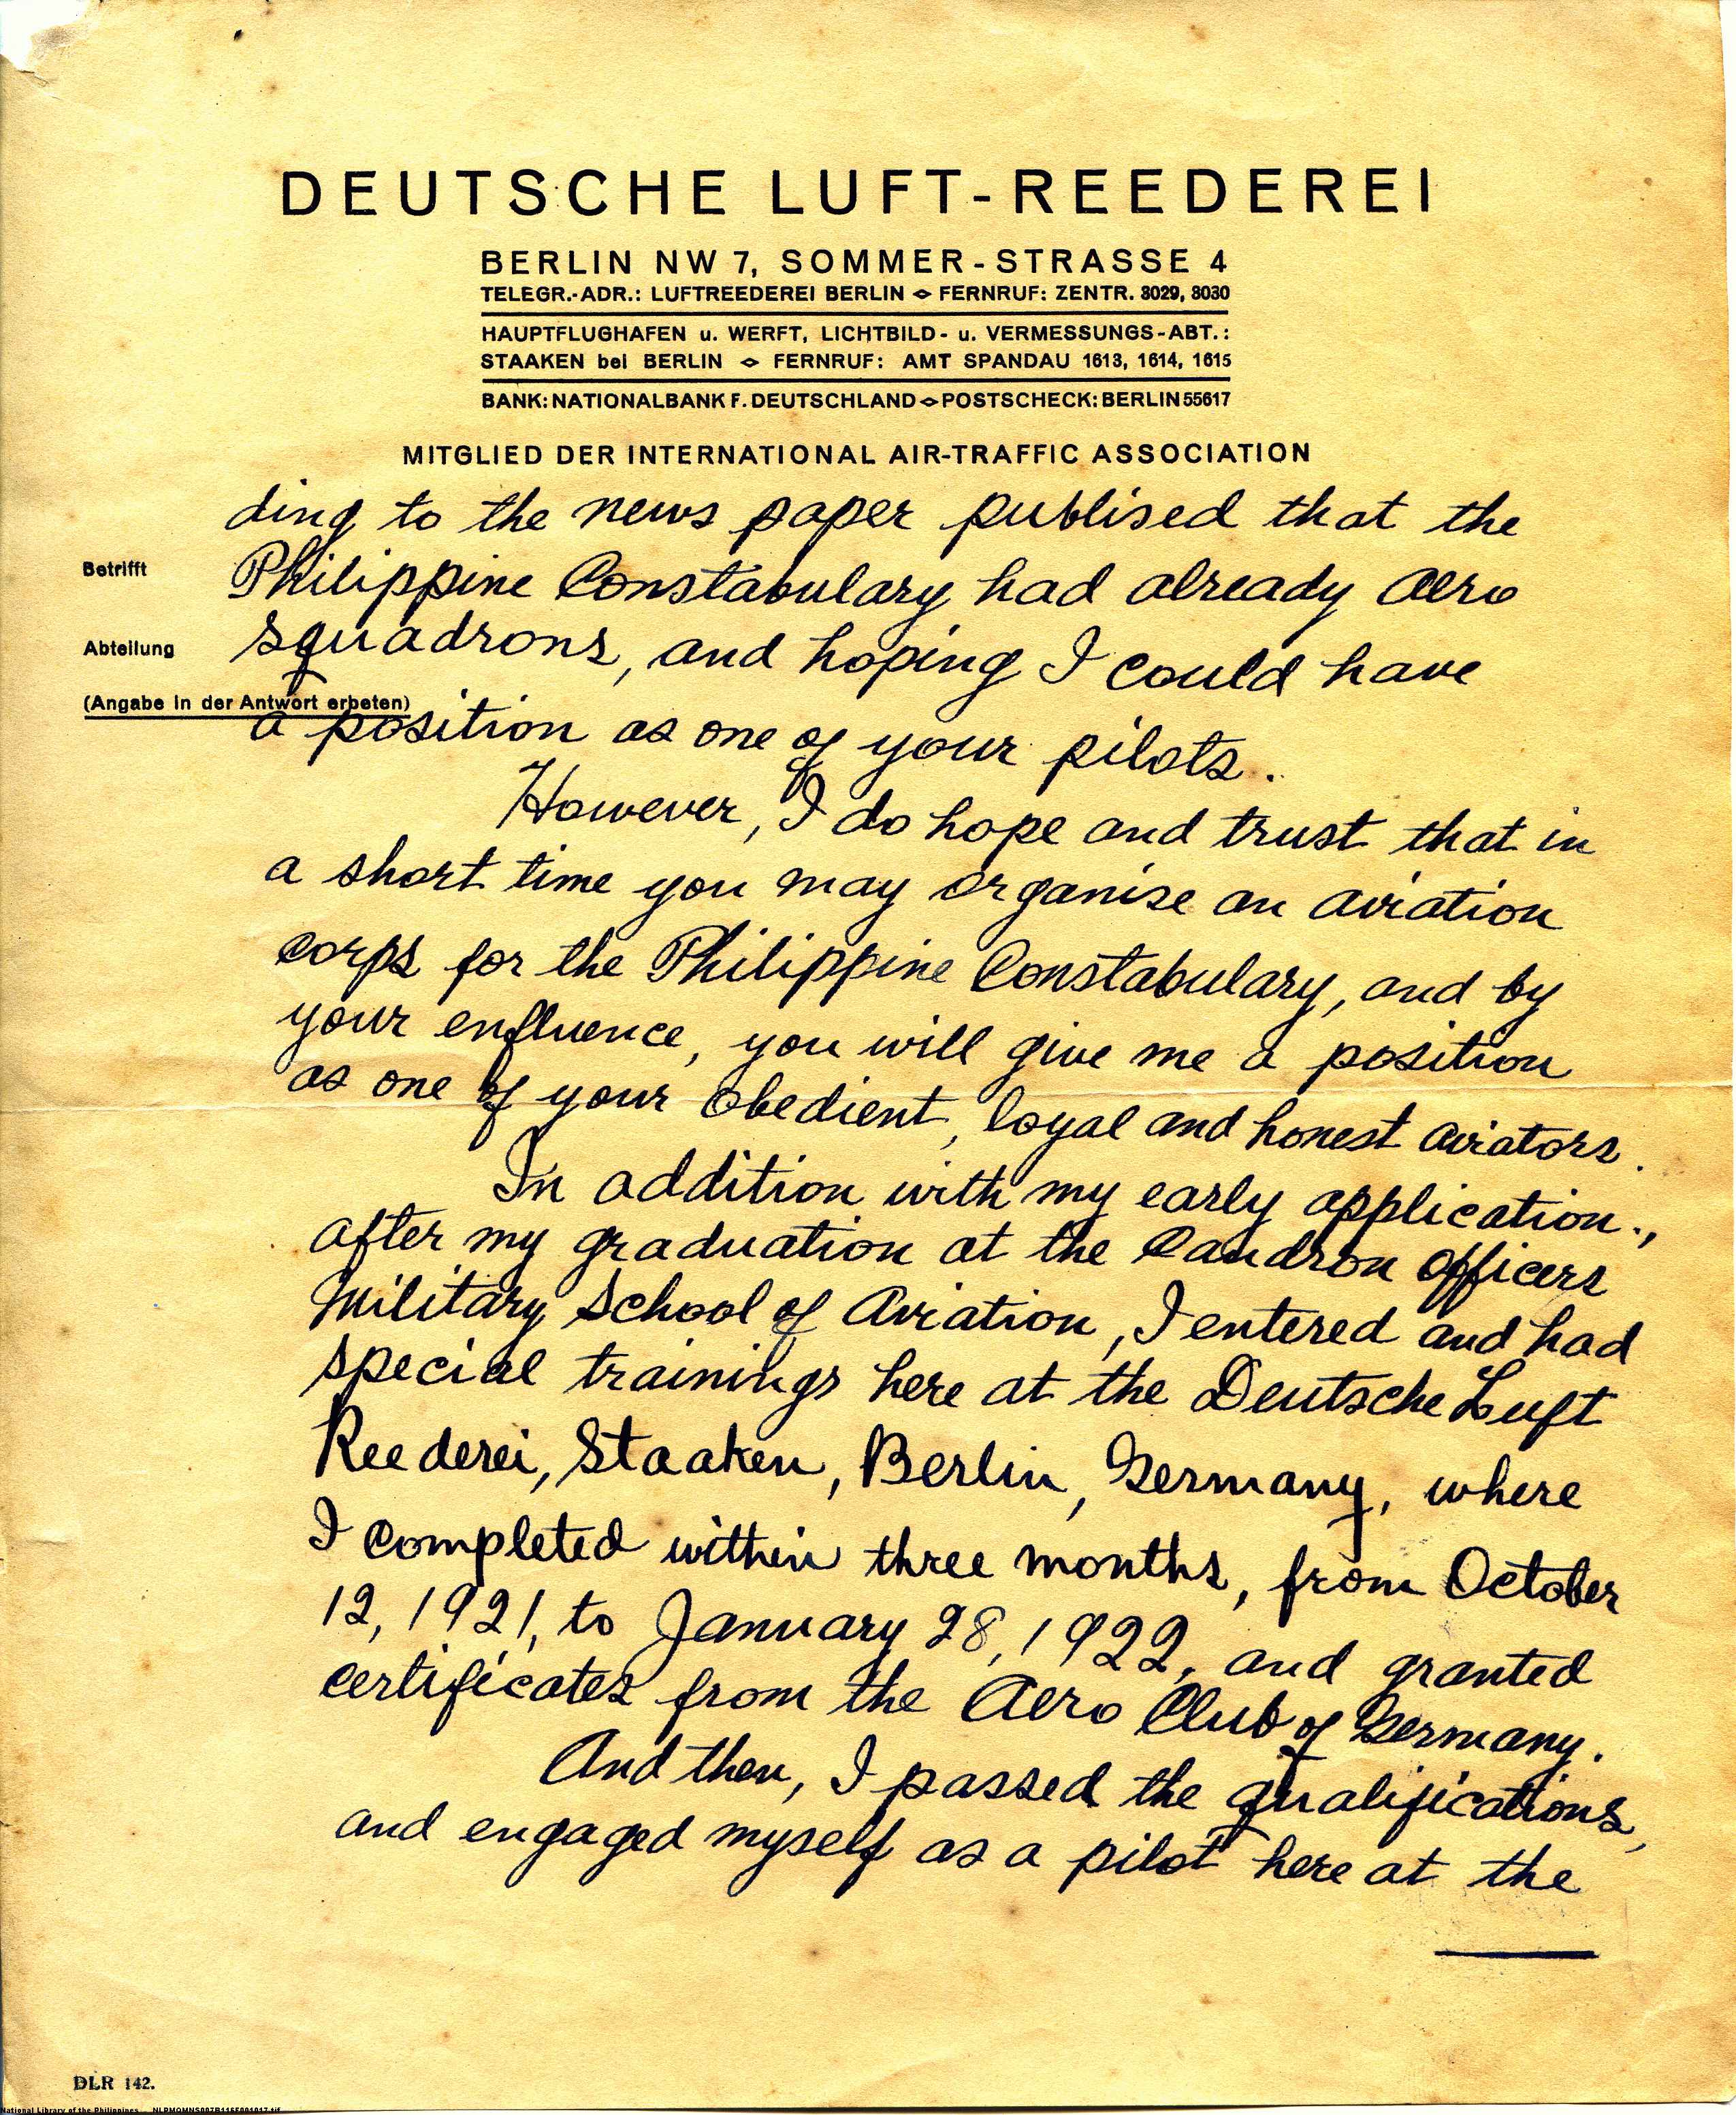 DEUTSCHE LUFT-REEDEREI
BERLIN NW 7, SOMMER-STRASSE 4
TELEGR.-ADR.: LUFTREEDEREI BERLIN ◇ FERNRUF: ZENTR. 8029, 8030
HAUPTFLUGHAFEN u. WERFT, LICHTBILD- u. VERMESSUNGS-ABT.:
STAAKEN bei BERLIN ◇ FERNRUF: AMT SPANDAU 1613, 1614, 1615
BANK: NATIONALBANK F. DEUTSCHLAND ◇ POSTSCHECK: BERLIN 55617
MITGLIED DER INTERNATIONAL AIR-TRAFFIC ASSOCIATION
ding to the news paper publised that the
Betrifft
Philippine Constabulary had already Aero
Abteilung
squadrons, and hoping I could have
(Angabe in der Antwort erbeten)
a position as one of your pilots.
However, I do hope and trust that in
a short time you may organise an aviation
corps for the Philippine Constabulary, and by
your enfluence, you will give me a position
as one of your obedient, loyal and honest aviators.
In addition with my early application.,
after my graduation at the Caudron Officers
Military School of Aviation, I entered and had
special trainings here at the Deutsche Luft
Reederei, Staaken, Berlin, Germany, where
I completed within three months, from October
12, 1921, to January 28, 1922, and granted
certificates from the Aero Club of Germany.
And then, I passed the qualifications,
and engaged myself as a pilot here at the
DLR 142.
National Library of the Philippines